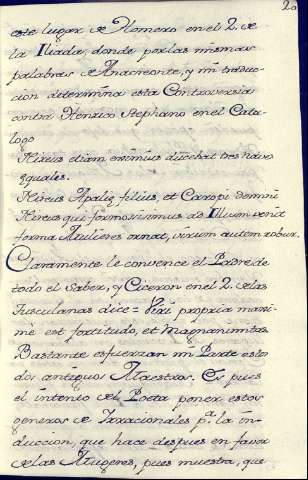 20
este lugar de Homero en el 2. de
la Iliada, donde por las mismas
palabras de Anacreonte, y mi traduc-
cion determina esta Controversia
contra Henrico Stephano en el Cata-
logo
Nireus etiam eximius ducebat tres naves
equales.
Nireus Aglajæ filius, et Caropi domini
Nireus qui formosissimus ad Ilium venit
forma Mulieres ornat, virum autem robur.
Claramente le convence el Padre de
todo el Saber, y Ciceron en el 2. de las
Tusculanas dice = Viri propria maxi-
mè est fortitudo, et Magnanimitas
Bastante esfuerzan mi Parte estos
dos antiguos Maestros. Es pues
el intento del Poeta poner estos
generos de Irracionales pª la in-
duccion, que hace despues en favor
de las Mugeres, pues muestra, que